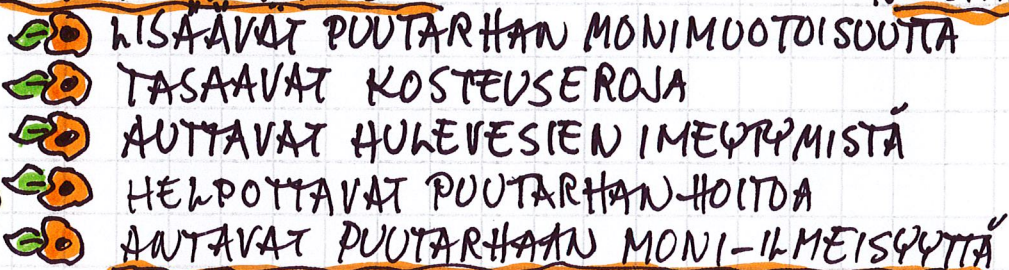 LISÄÄVÄT PUUTARHAN MONIMUOTOISUUTTA
TASAAVAT KOSTEUSEROJA
AUTTAVAT HULEVESIEN IMEYTYMISTÄ
HELPOTTAVAT PUUTARHANHOITOA
ANTAVAT PUUTARHAAN MONI-ILMEISYYTTÄ